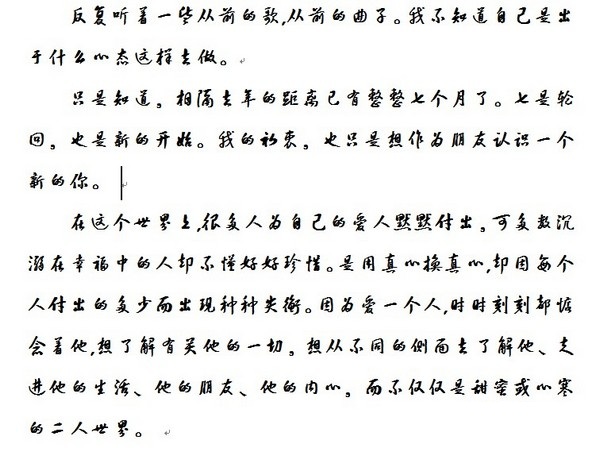 反复听着一些从前的歌,从前的曲子。我不知道自己是出
于什么心态这样去做。
只是知道。相隔去年的距离已有整整七个月了。七是轮
回。也是新的开始。我的初衷。也只是想作为朋友认识一个
新的你。
在这个世界上,很多人为自己的爱人默默付出。可多数沉
溺在幸福中的人却不懂好好珍惜。是用真心换真心,却因每个
人付出的多少而出现种种失衡。因为爱一个人,时时刻刻都惦
念着他,想了解有关他的一切。想从不同的侧面去了解他、走
进他的生活、他的朋友、他的内心。而不仅仅是甜蜜或心寒
的二人世界。